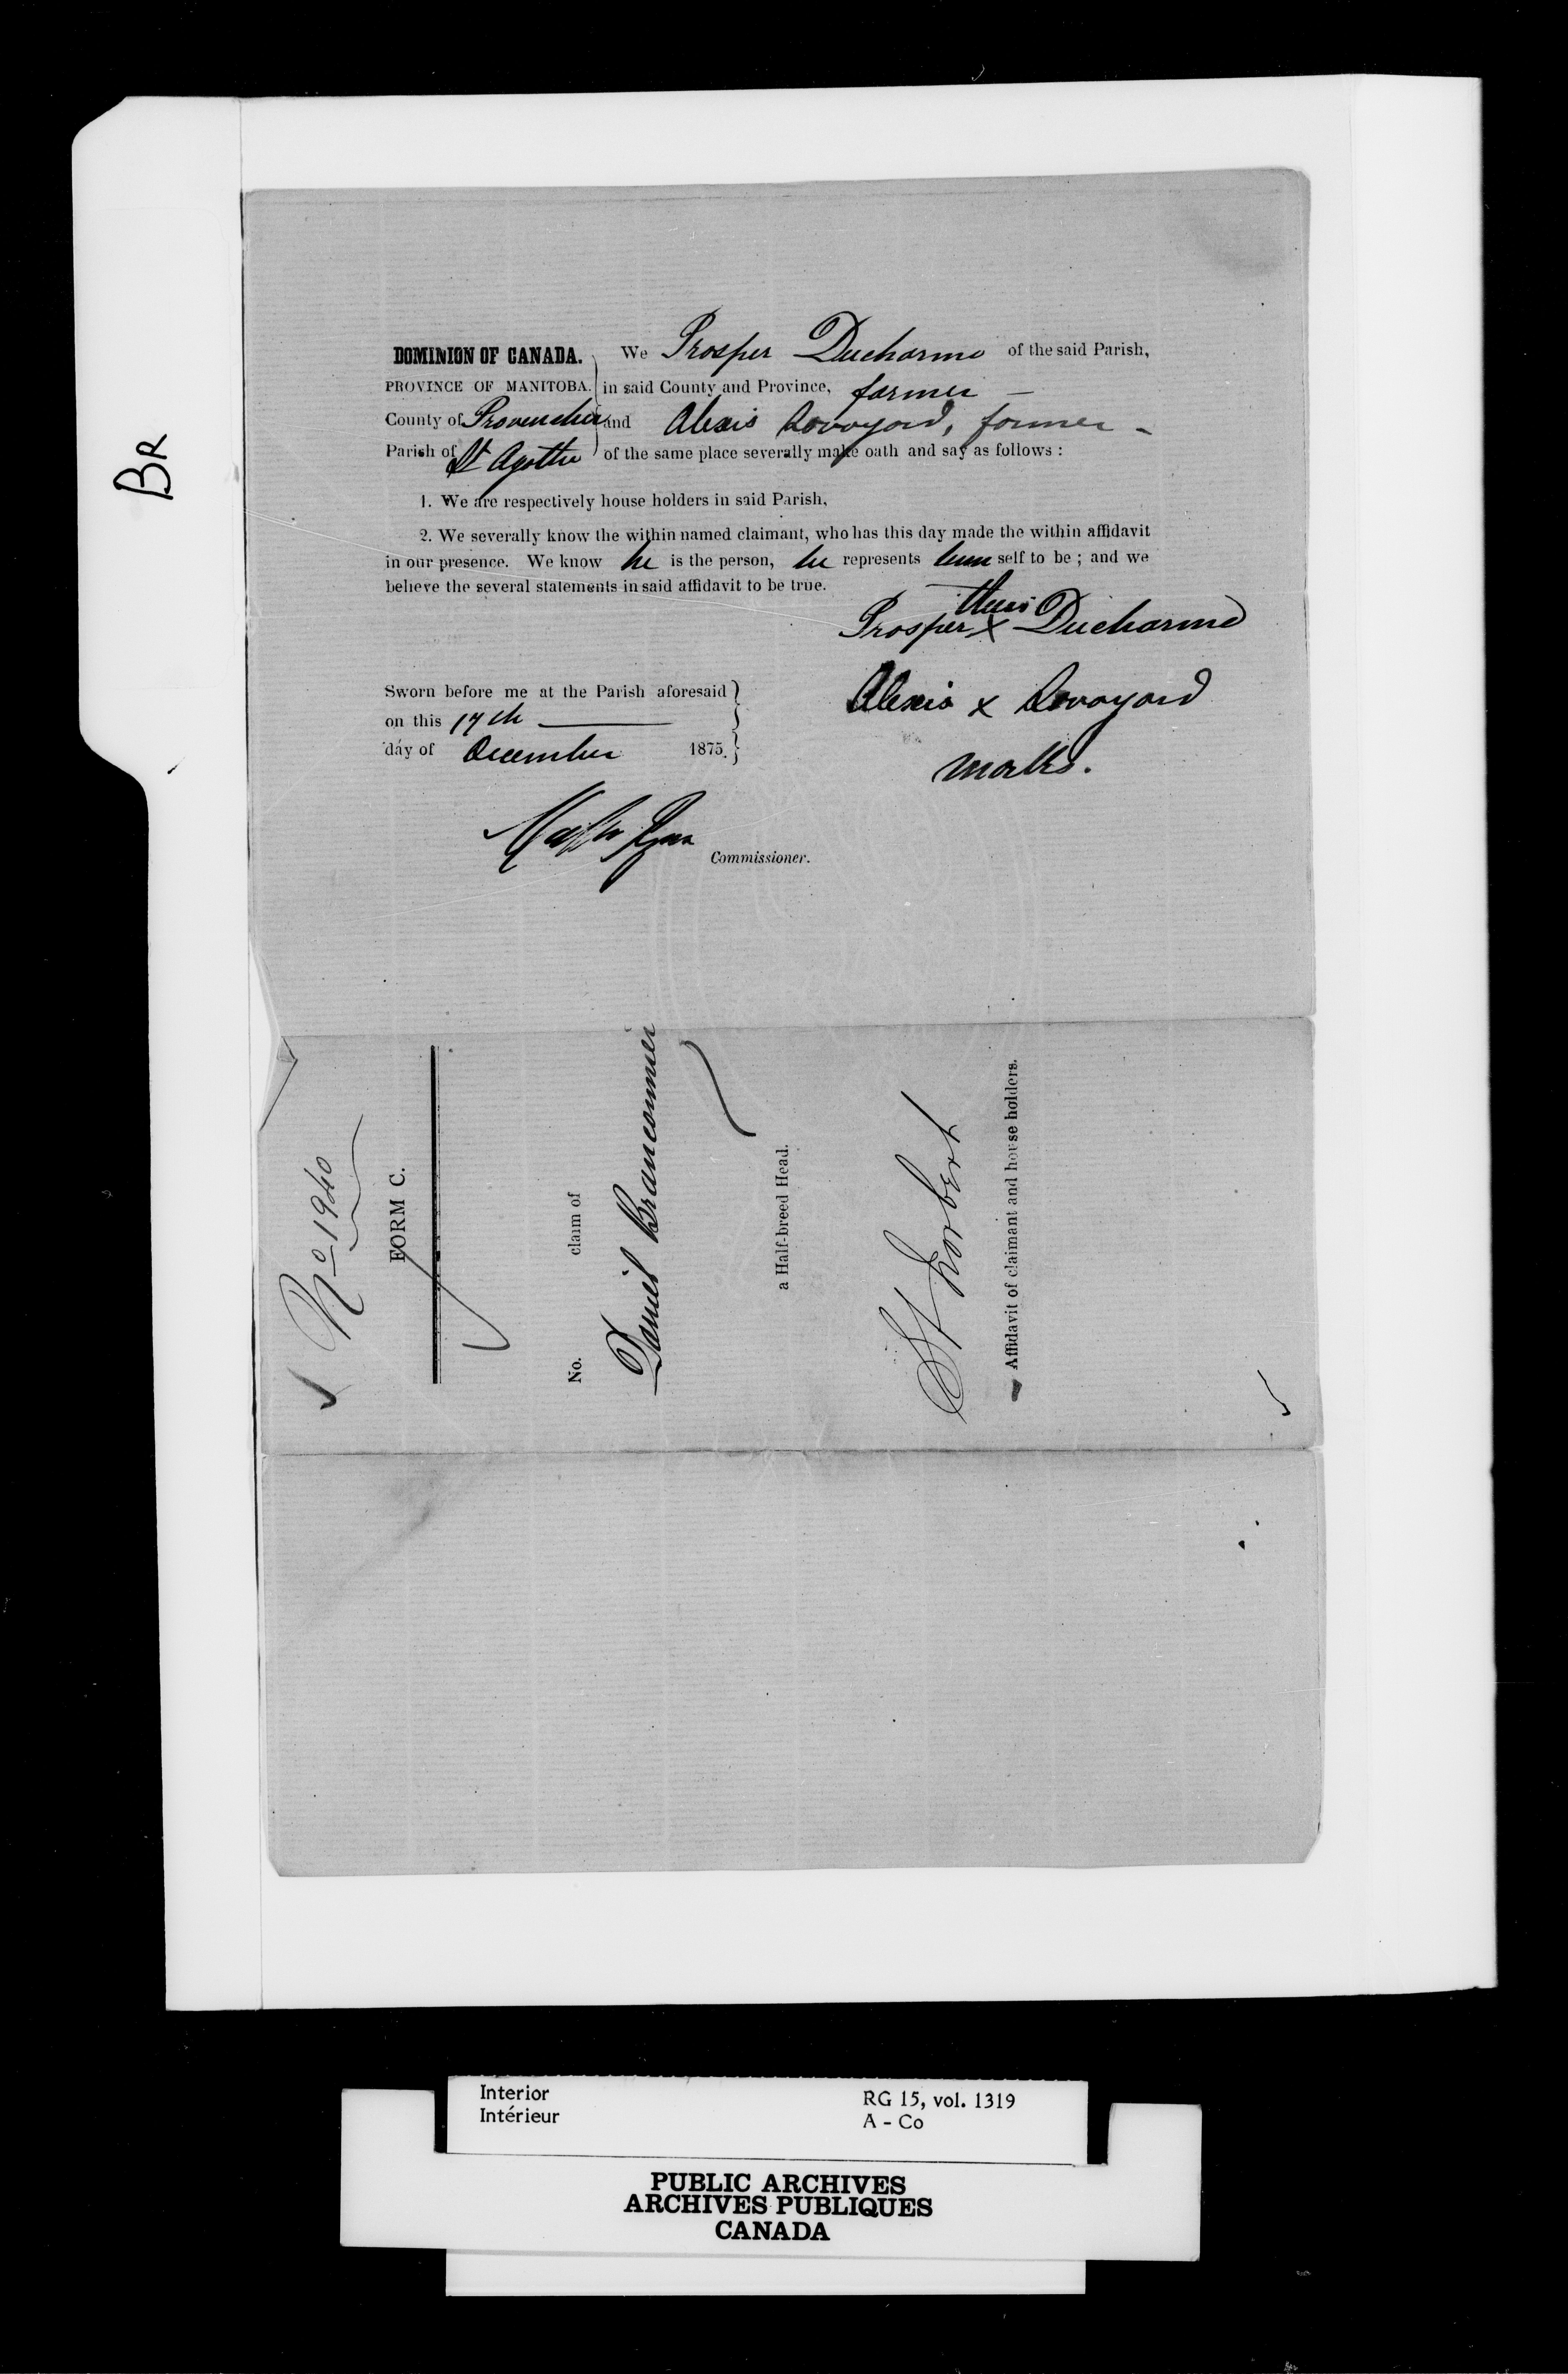 BR
DOMINION OF CANADA. We Prosper Ducharme of the said Parish,
PROVINCE OF MANITOBA. in said County and Province, farmer —
County of Provencher and Alexis Lavoyard, farmer -
Parish of St Agathe of the same place severally make oath and say as follows :
1. We are respectively house holders in said Parish,
2. We severally know the within named claimant, who has this day made the within affidavit
in our presence. We know he is the person, he represents him self to be ; and we
believe the several statements in said affidavit to be true.
their
Prosper x Ducharme
Alexis x Lavoyard
marks.
Sworn before me at the Parish aforesaid
on this 17th
day of December 1875.
Commissioner.
No 1940
FORM C.
No. claim of
Daniel Branconnier
a Half-breed Head.
St Norbert
Affidavit of claimant and house holders.
Interior RG 15, vol. 1319
Intérieur A - Co
PUBLIC ARCHIVES
ARCHIVES PUBLIQUES
CANADA